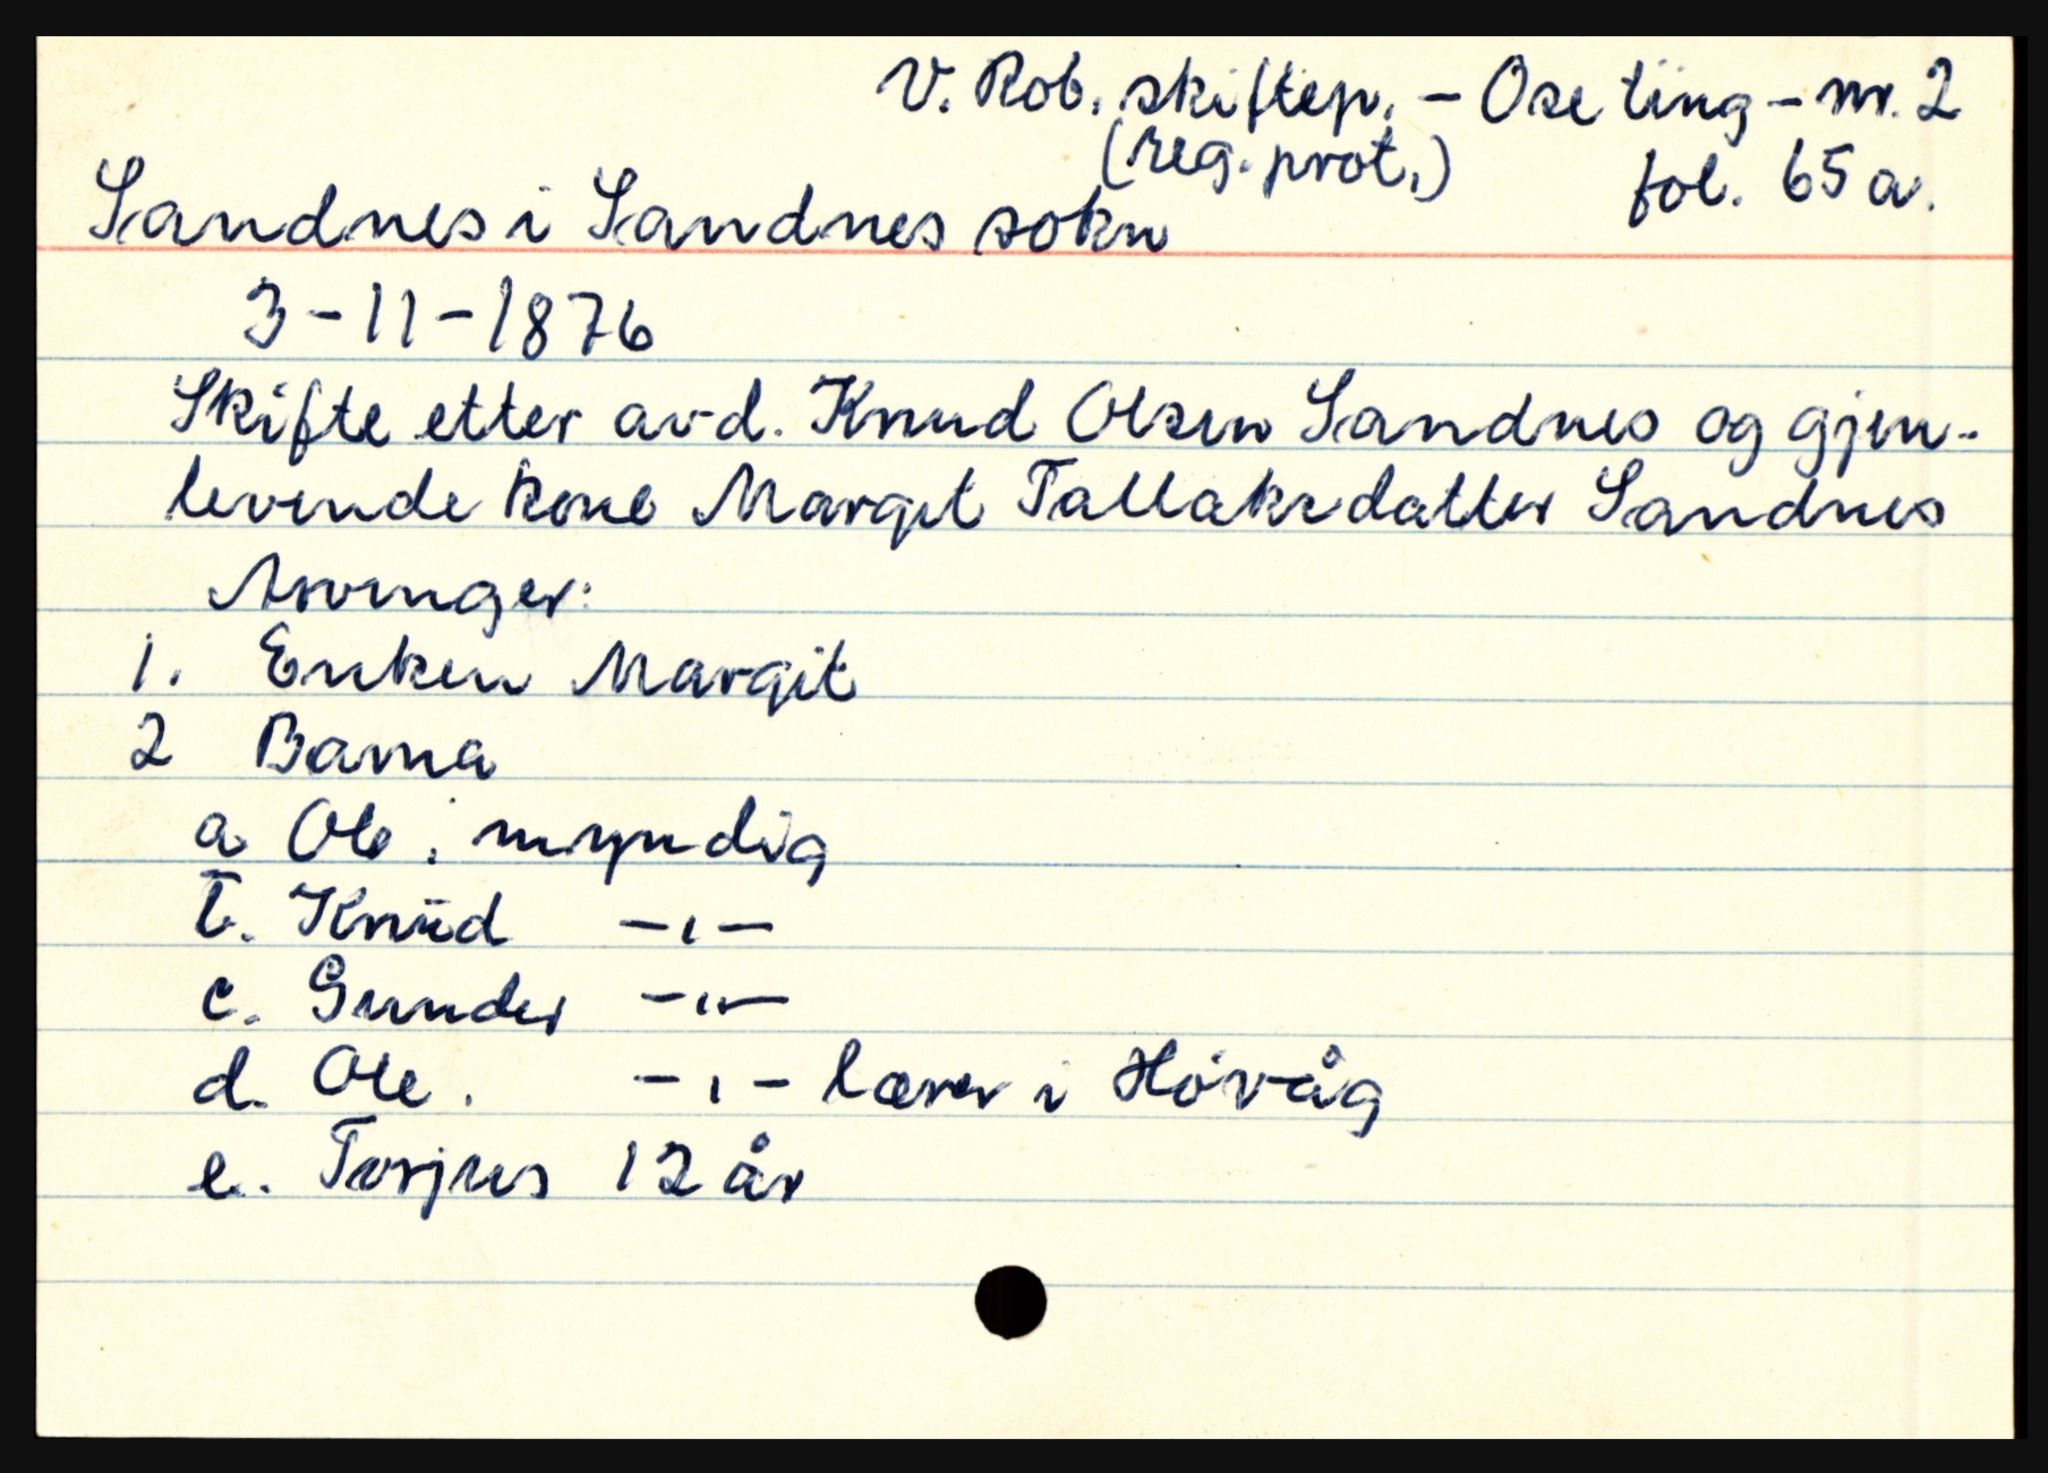 V. Rob. skiftep. - Ose ting - nr. 2
(reg. prot.) fol. 65 a.
Sandnes i Sandnes sokn
3-11-1876
Skifte etter avd. Knud Olsen Sandnes og gjen-
levende kone Margit Tallaksdatter Sandnes
Arvinger:
1. Enken Margit
2 Barna
a Ole, myndig
b. Knud -"-
c. Gunder -"-
d. Ole. -"- lærer i Høvåg
e. Torjus 12 år